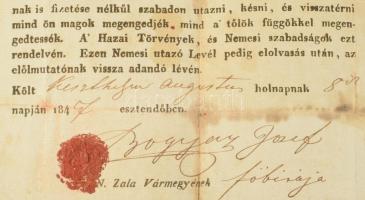 nak is fizetése nélkül szabadon utazni, késni, és visszatérni
mind ön magok megengedjék, mind a' tölök függökkel megen-
gedtessék. A' Hazai Törvények, és Nemesi szabadságok ezt
rendelvén. Ezen Nemesi utazó Levél pedig elolvasás után, az
elölmutatónak vissza adandó lévén.
Költ Keszthelyen Augustus holnapnak 8ik
napján 1847 esztendöben.
Bogyay Josef
N. Zala Vármegyének föbirája